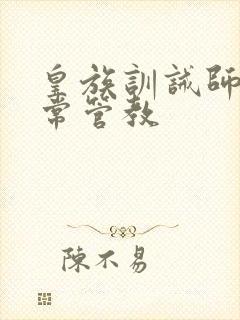 皇族訓誡師
常管教
陳不易